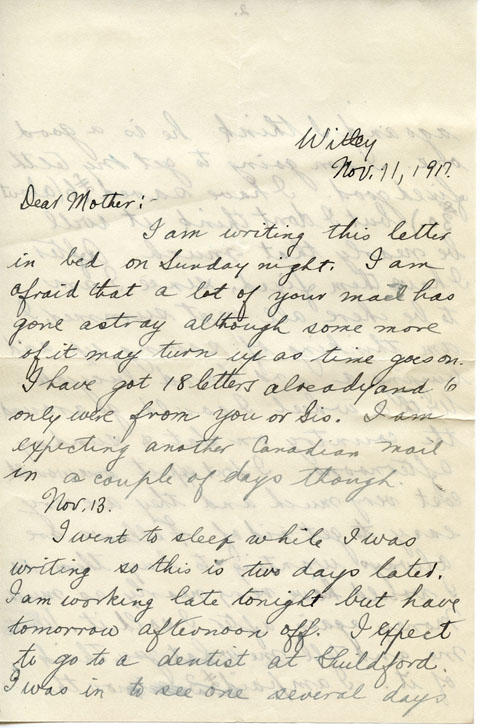 Witley
Nov. 11, 1917.
Dear Mother:-
I am writing this letter
in bed on Sunday night. I am
afraid that a lot of your mail has
gone astray although some more
of it may turn up as time goes on.
I have got 18 letters already and 6
only were from you or Sis. I am
expecting another Canadian mail
in a couple of days though.
Nov. 13.
I went to sleep while I was
writing so this is two days later.
I am working late tonight but have
tomorrow afternoon off. I expect
to go to a dentist at Guildford.
I was in to see one several days